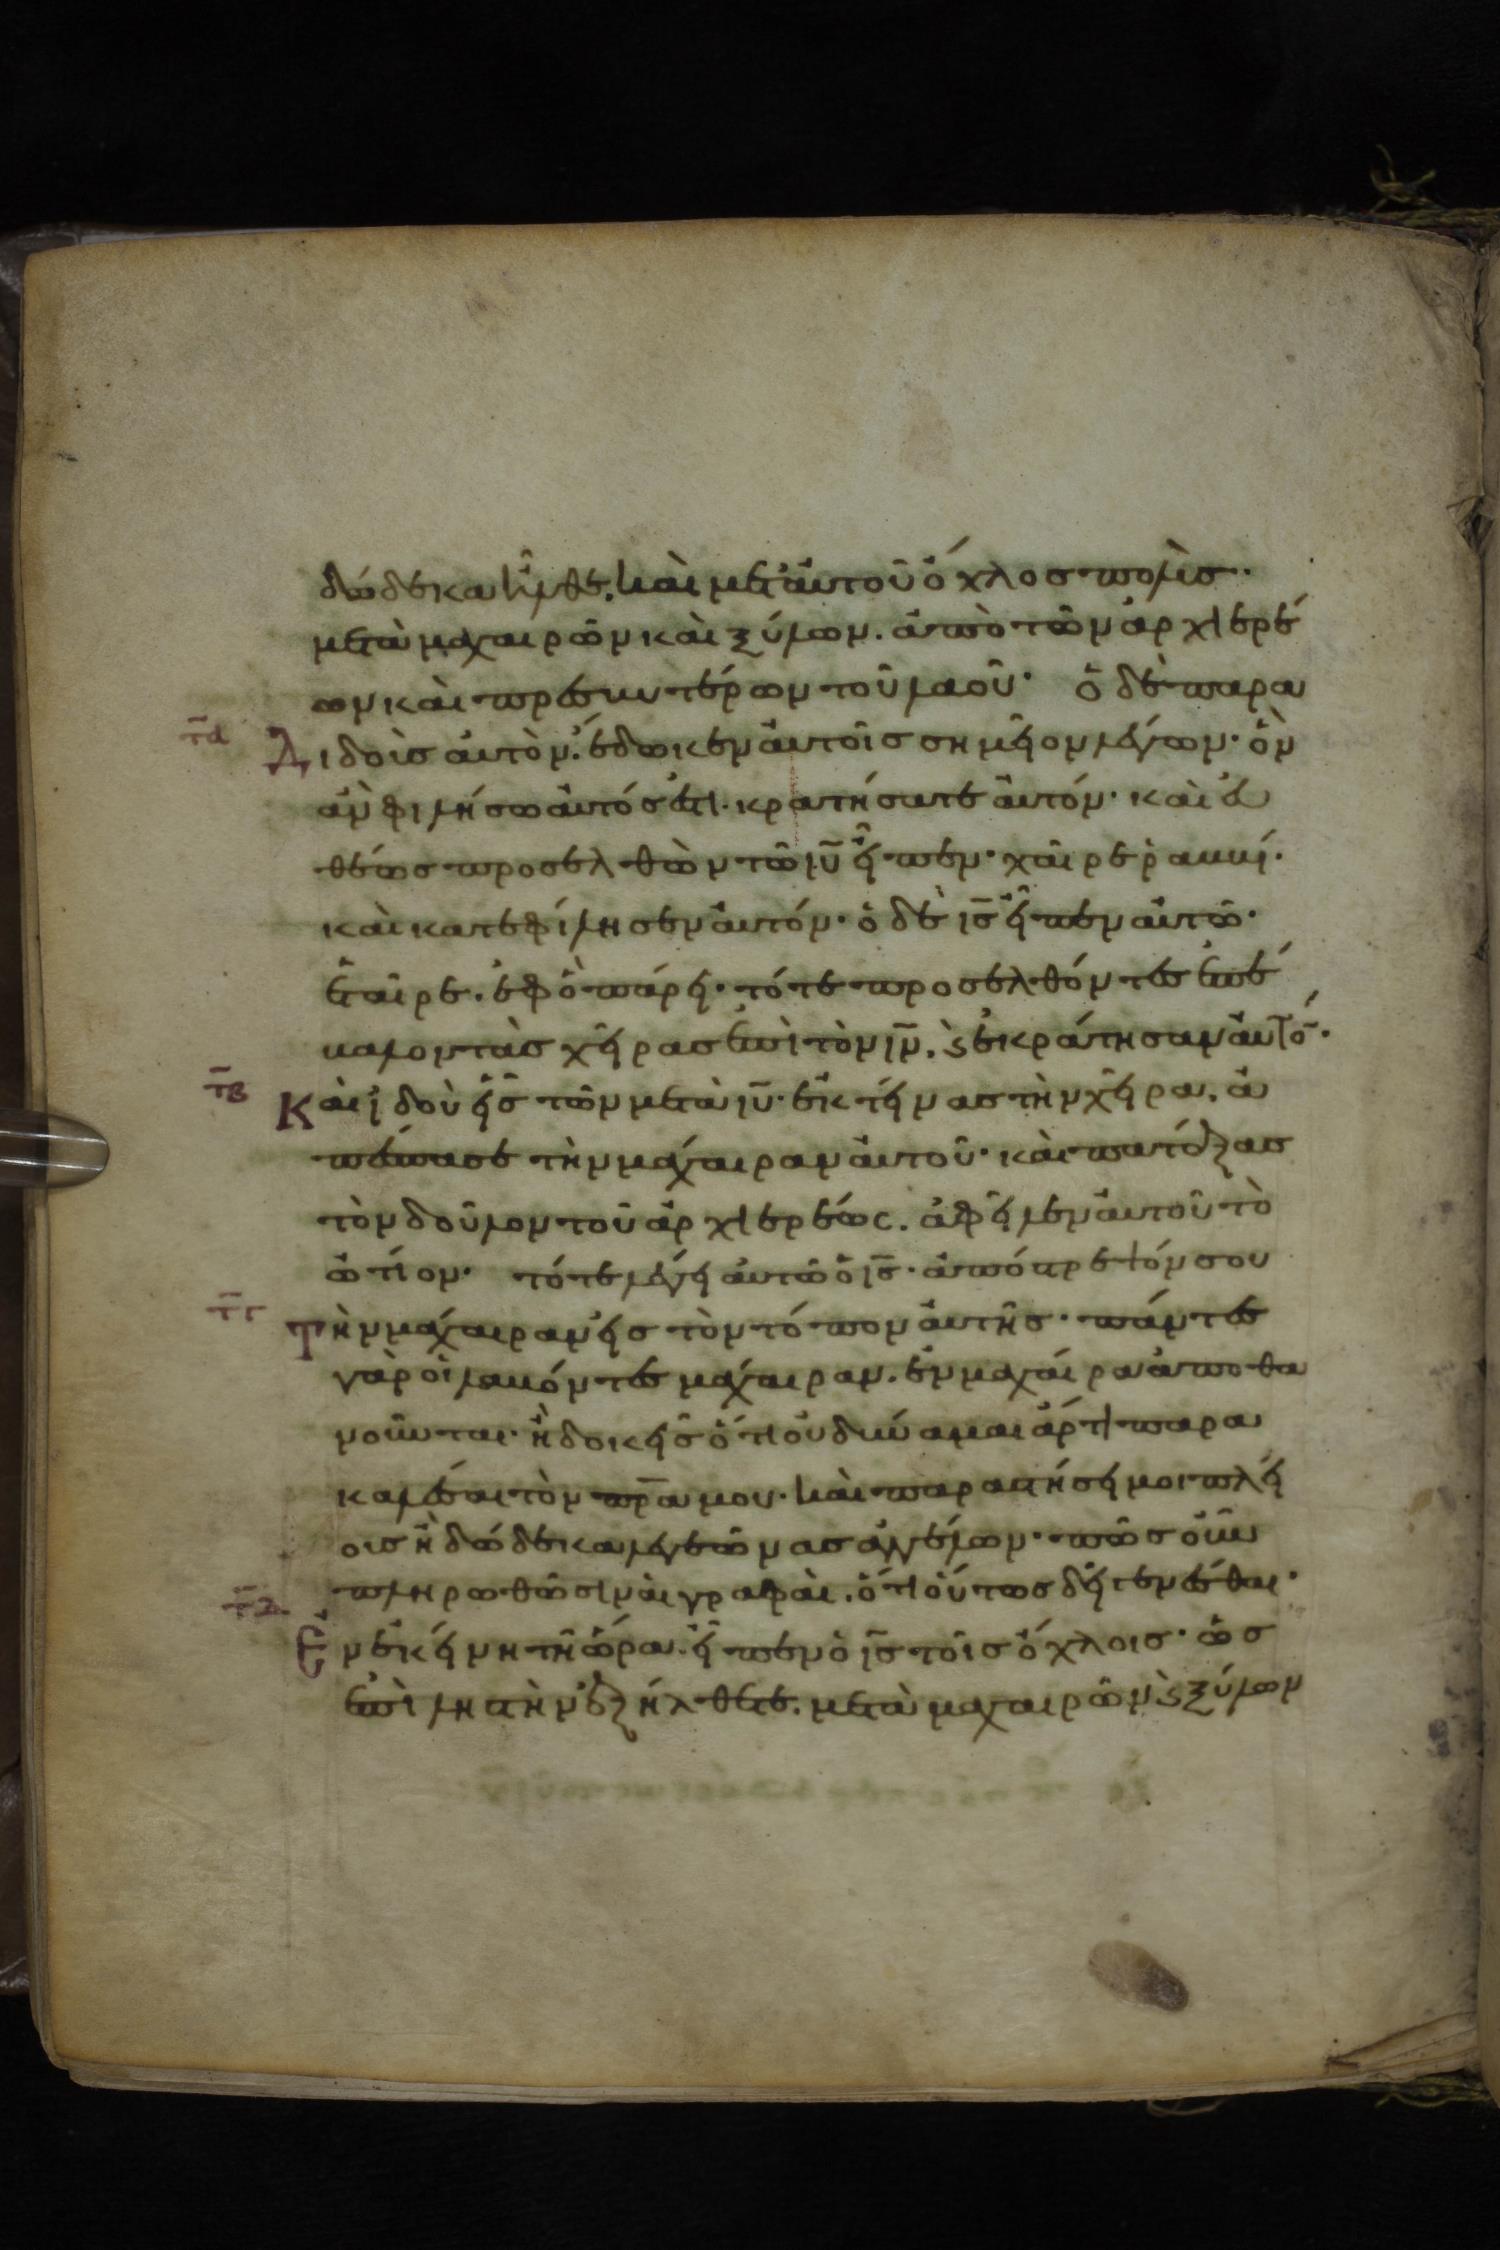 δώδεκα ἦλθε. καὶ μετ' αὐτοῦ ὄχλος πολὺς·
μετὰ μαχαιρῶν καὶ ξύλων. ἀπὸ τῶν ἀρχιερέ
ων καὶ πρεσβυτέρων τοῦ λαοῦ· ὁ δὲ παρα
τα διδοὺς αὐτὸν. ἔδωκεν αὐτοῖς σημεῖον λέγων· ὃν
ἂν φιλήσω αὐτός ἐστι. κρατήσατε αὐτόν· καὶ εὐ
θέως προσελθὼν τῶ ιυ εἶπεν· χαῖρε ῥαββί.
καὶ κατεφίλησεν αὐτόν· ὁ δὲ ις εἶπεν αὐτῶ·
ἑταῖρε. ἐφ' ὃ πάρει· τότε προσελθόντες ἐπέ
βαλον τὰς χεῖρας ἐπὶ τὸν ιν. ϗ ἐκράτησαν αὐτό·
τβ Καὶ ἰδοὺ εἷς τῶν μετὰ ιυ· ἐκτείνας τὴν χεῖρα. ἀ
πέσπασε τὴν μάχαιραν αὐτοῦ· καὶ πατάξας
τὸν δοῦλον τοῦ ἀρχιερέως. ἀφεῖλεν αὐτοῦ τὸ
ὠτίον· τότε λέγει αὐτῶ ὁ ις· ἀπόστρεψόν σου
τγ Τὴν μάχαιραν εἰς τὸν τόπον αὐτῆς· πάντες
γὰρ οἱ λαβόντες μάχαιραν. ἐν μαχαίρα ἀποθα
νοῦνται· ἢ δοκεῖς ὅτι οὐ δύναμαι ἄρτι παρα
καλέσαι τὸν πρα μου· καὶ παραστήσει μοι πλεί
ους ἢ δώδεκα λεγεῶνας ἀγγέλων· πῶς οὖν
πληρωθῶσιν αἱ γραφαὶ. ὅτι οὕτως δεῖ γενέσθαι·
τδ Ἐν ἐκείνη τῆ ὥρα. εἶπεν ὁ ις τοῖς ὄχλοις· ὡς
ἐπὶ ληστὴν ἐξήλθετε. μετὰ μαχαιρῶν ϗ ξύλων